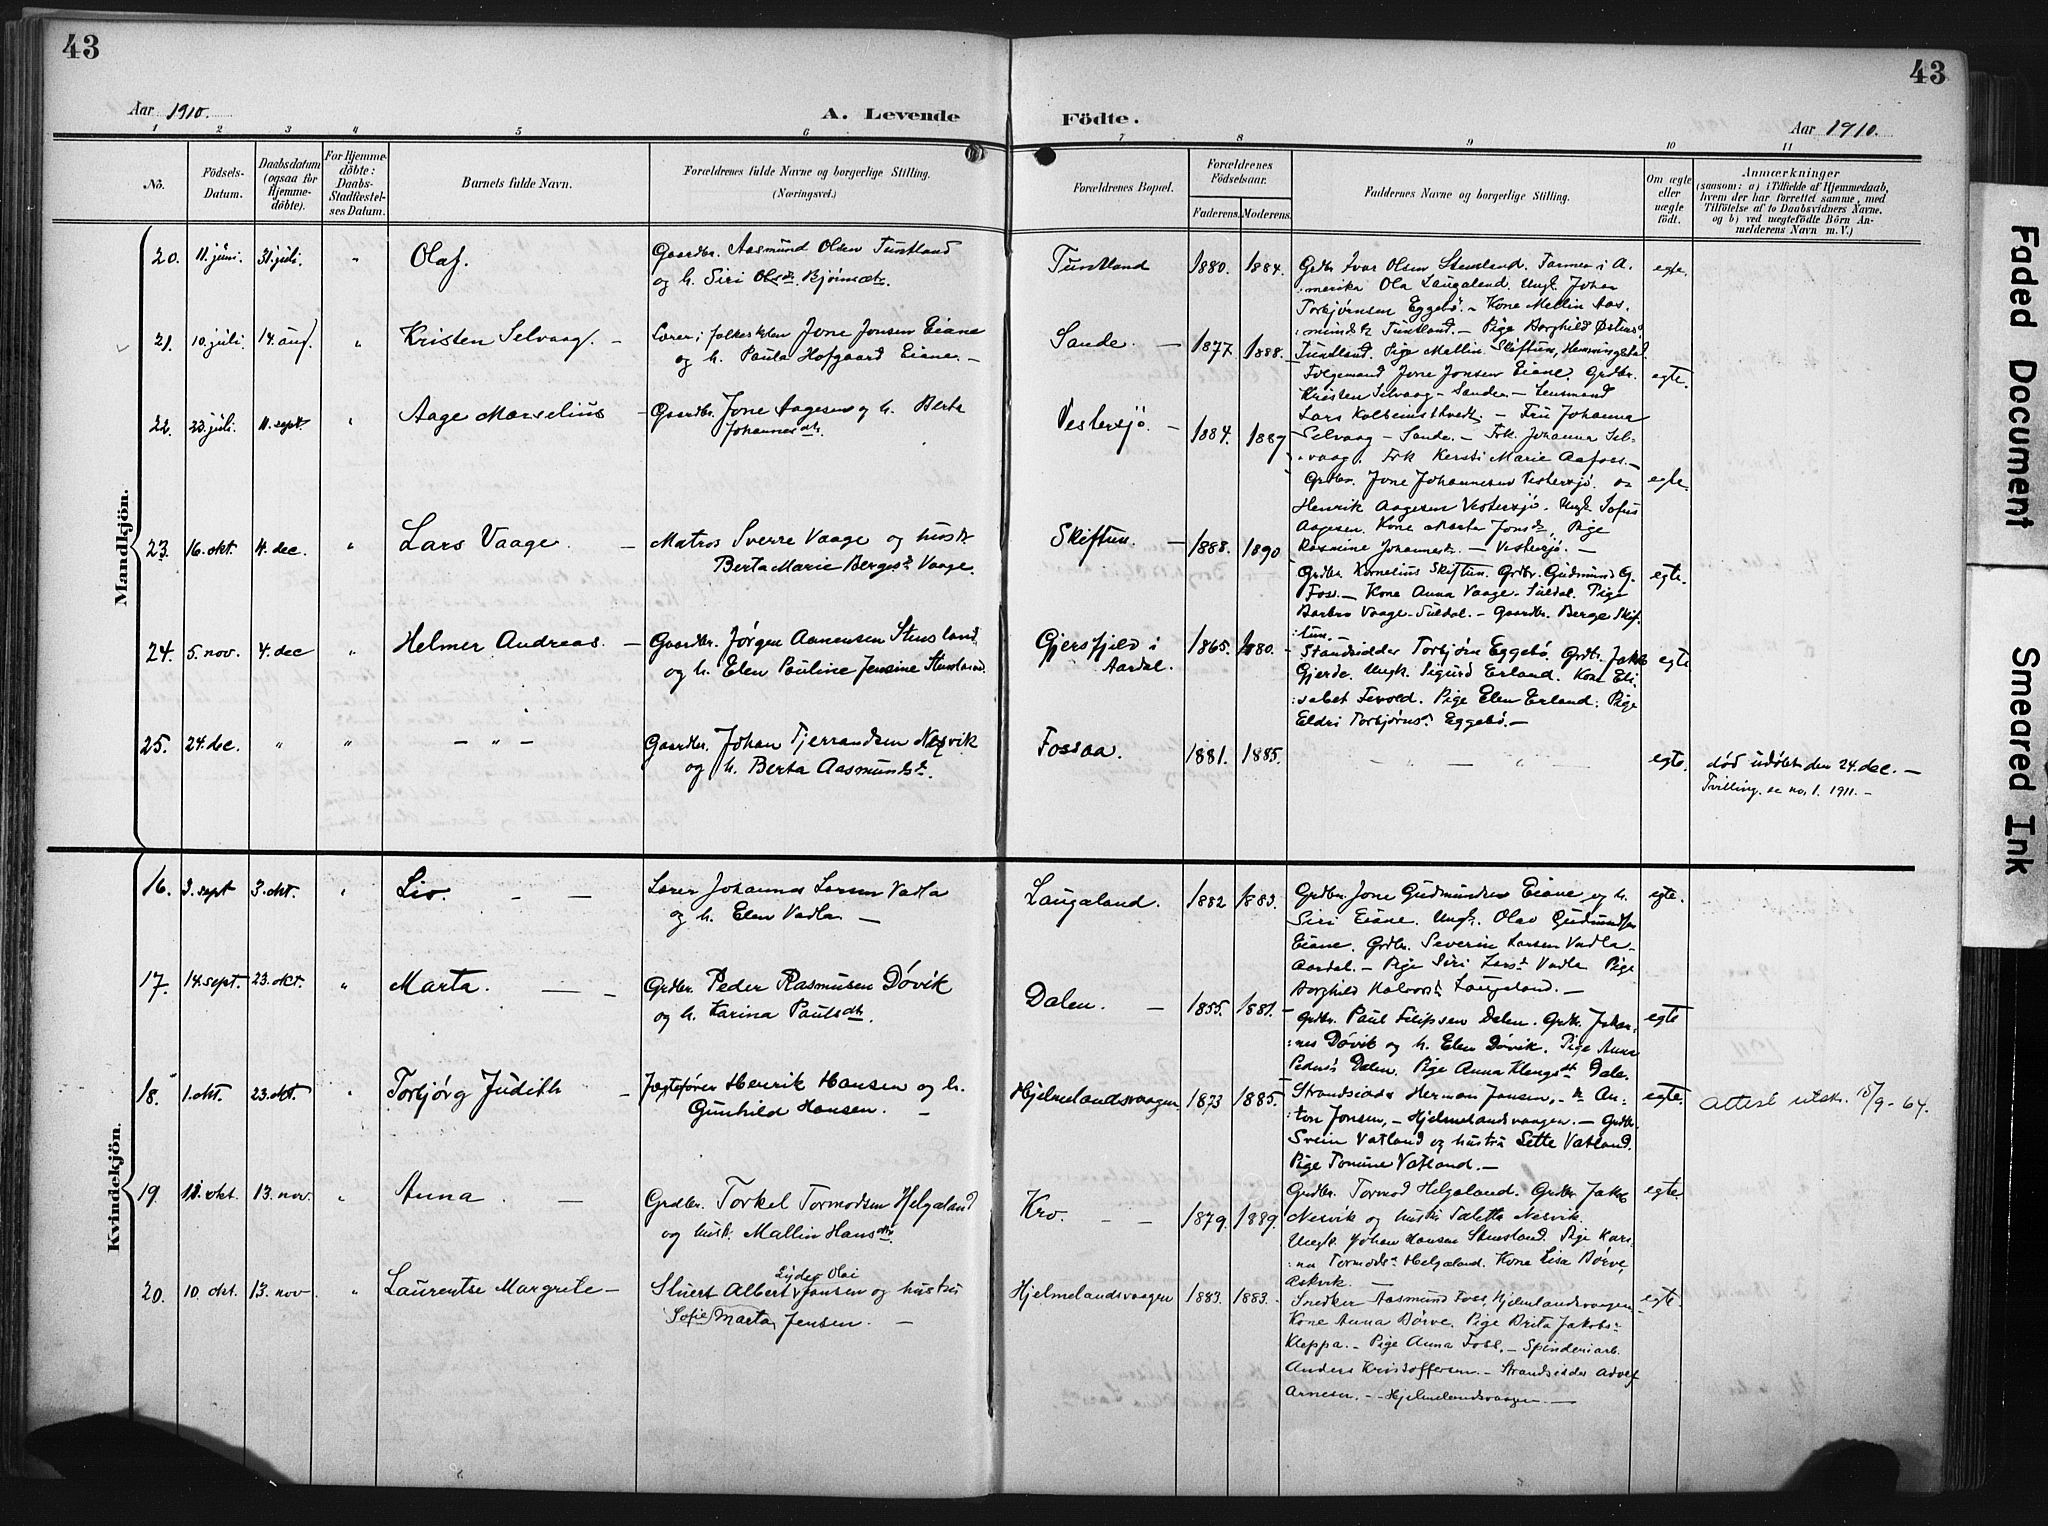 43
43
Aar 1910.
A. Levende
Födte.
Aar 1910.
1 2 3 4 5 6 7 8 9 10 11
No.
Födsels-
Datum.
Daabsdatum
(ogsaa for
Hjemme-
døbte).
For Hjemme-
døbte:
Daabs-
Stadfæstel-
ses Datum.
Barnets fulde Navn.
Forældrenes fulde Navne og borgerlige Stilling.
(Næringsvei.)
Forældrenes Bopæl.
Forældrenes
Födselsaar.
Faderens. Moderens.
Faddernes Navne og borgerlige Stilling.
Om ægte
eller
uægte
födt.
Anmærkninger
(saasom: a) i Tilfælde af Hjemmedaab,
hvem der har forrettet samme, med
Tilföielse af to Daabsvidners Navne.
og b) ved uegtefödte Börn An-
melderens Navn m. V.)
Mandkjön.
20. 11. juni. 31. juli. " Olaf.
Gaardbr. Aasmund Olsen Tuntland
og h. Siri Olsdt. Bjørnsdtr.
Tuntland 1880. 1884.
Grdbr. Ivar Olsen Stensland. Farmer i A-
merika Ola Laugaland. Ungk. Johan
Torbjørnsen Eggebø. - Kone Mallin Aas-
mundsdt. Tuntland. - Pige Borghild Østens
Tuntland. Pige Mallin Skiftun, Hemningstad
egte.
21. 10. juli. 14. aug. " Kristen Selvaag. -
Lærer i folkeskolen Jone Jonsen Eiane
og h. Paula Hofgaard Eiane. -
Sande. - 1877. 1888.
Følgemand Jone Jonsen Eiane. Grdbr.
Kristen Selvaag - Sande - Lensmand
Lars Kolbeinstveit. - Fru Johanna
Selvaag - Sande. - Frk. Johanna Sel-
vaag. Frk Kersti Marie Aafoss. -
egte.
22. 23. juli. 11. sept. " Aage Marselius -
Gaardbr. Jone Aagesen og h. Berta
Johannesdtr.
Vestersjø. - 1884. 1887
Grdbr. Jone Johannesen Vestersjø. og
Henrik Aagesen Vestersjø. Ungk. Sofus
Aagesen. Kone Marta Jonsdt. Pige
Rasmine Johannesdt. - Vestersjø. -
egte.
23. 16. okt. 4. dec. " Lars Vaage. -
Matros Sverre Vaage og hustr.
Berta Marie Bergesdt. Vaage.
Skiftun. - 1888. 1890
Grdbr. Kornelius Skiftun. Grdbr. Gudmund G.
Foss. - Kone Anna Vaage. Suldal. Pige
Barbro Vaage - Suldal. - Gaardbr. Berge Skif-
tun. -
egte.
24. 5. nov. 4. dec " Helmer Andreas. -
Gaardbr. Jørgen Aanensen Stensland
og h. Elen Pauline Jensine Stensland.
Gjersfjeld i
Aardal. 1865. 1880.
Strandsidder Torbjørn Eggebø. Grdbr. Jakob
Gjerde. Ungk. Sigurd Erland. Kone Eli-
sabet Tevold. Pige Elen Erland. Pige
Eldri Torbjørnsdt. Eggebø. -
egte
25. 24. dec. " " - " -
Gaardbr. Johan Tjerrandsen Nesvik
og h. Berta Aasmundsdt.
Fossaa. 1881. 1885.
- " - " -
egte.
død udøbt den 24. dec. -
Tvilling. se no. 1. 1911. -
Kvindekjön.
16. 3. sept 3. okt. " Liv. - -
Lærer Johannes Larsen Vadla
og h. Elen Vadla -
Laugaland. 1882 1883.
Grdbr. Jone Gudmundsen Eiane og h.
Siri Eiane. Ungk. Olav Gudmundsen
Eiane. Grdbr. Severin Larsen Vadla -
Aardal. - Pige Siri Larsdt Vadla Pige
Borghild Halvorsdt Laugaland. -
egte.
17. 14. sept. 23. okt. " Marta. - -
Grdbr. Peder Rasmusen Døvik
og h. Karina Paulsdtr.
Dalen. - 1855. 1881. -
Grdbr. Paul Filipsen Dalen. Grdbr. Johan-
nes Døvik og h. Elen Døvik. Pige Anna
Peders Dalen. Pige Anna Klengsdt. Dale.
egte
18. 1. okt 23. okt. " Torbjørg Judith -
Jægtefører Henrik Hansen og h.
Gunhild Hansen. -
Hjelmelandsvaagen 1873 1885.
Strandsidder Herman Jansen, - An-
ton Jonsen, - Hjelmelandsvaagen. - Grdbr.
Svein Vatland og hustru Sette Vatland.
Pige Tomine Vatland. -
egte.
Attest utskr. 15/9 - 64.
19. 11. okt. 13. nov. " Anna. -
Grdbr. Torkel Tormodsen Helgaland
og hust. Mallin Hansdtr.
Kro. - - 1879. 1889.
Grdbr. Tormod Helgaland. Grdbr. Jakob
Nesvik og hustru Taletta Nesvik.
Ungk. Johan Hansen Stensland. Pige Kari-
na Tormodsdt. Helgaland. Kone Lisa Børve,
Askvik. -
egte
20. 10. okt. 13. nov. " Laurentse Margrete -
Lyder Olai
Stuert Albert Jansen og hustru
Sofie Marta Jensen. -
Hjelmelandsvaagen 1883. 1883. -
Snedker Aasmund Foss, Hjelmelandsvaagen
Kone Anna Børve. Pige Brita Jakobs.
Kleppa. - Pige Anna Foss. - Spinderiarb.
Anders Kristoffersen. - Strandsidder Adolf
Arnesen. - Hjelmelandsvaagen. -
egte.
Faded Document
Smeared Ink